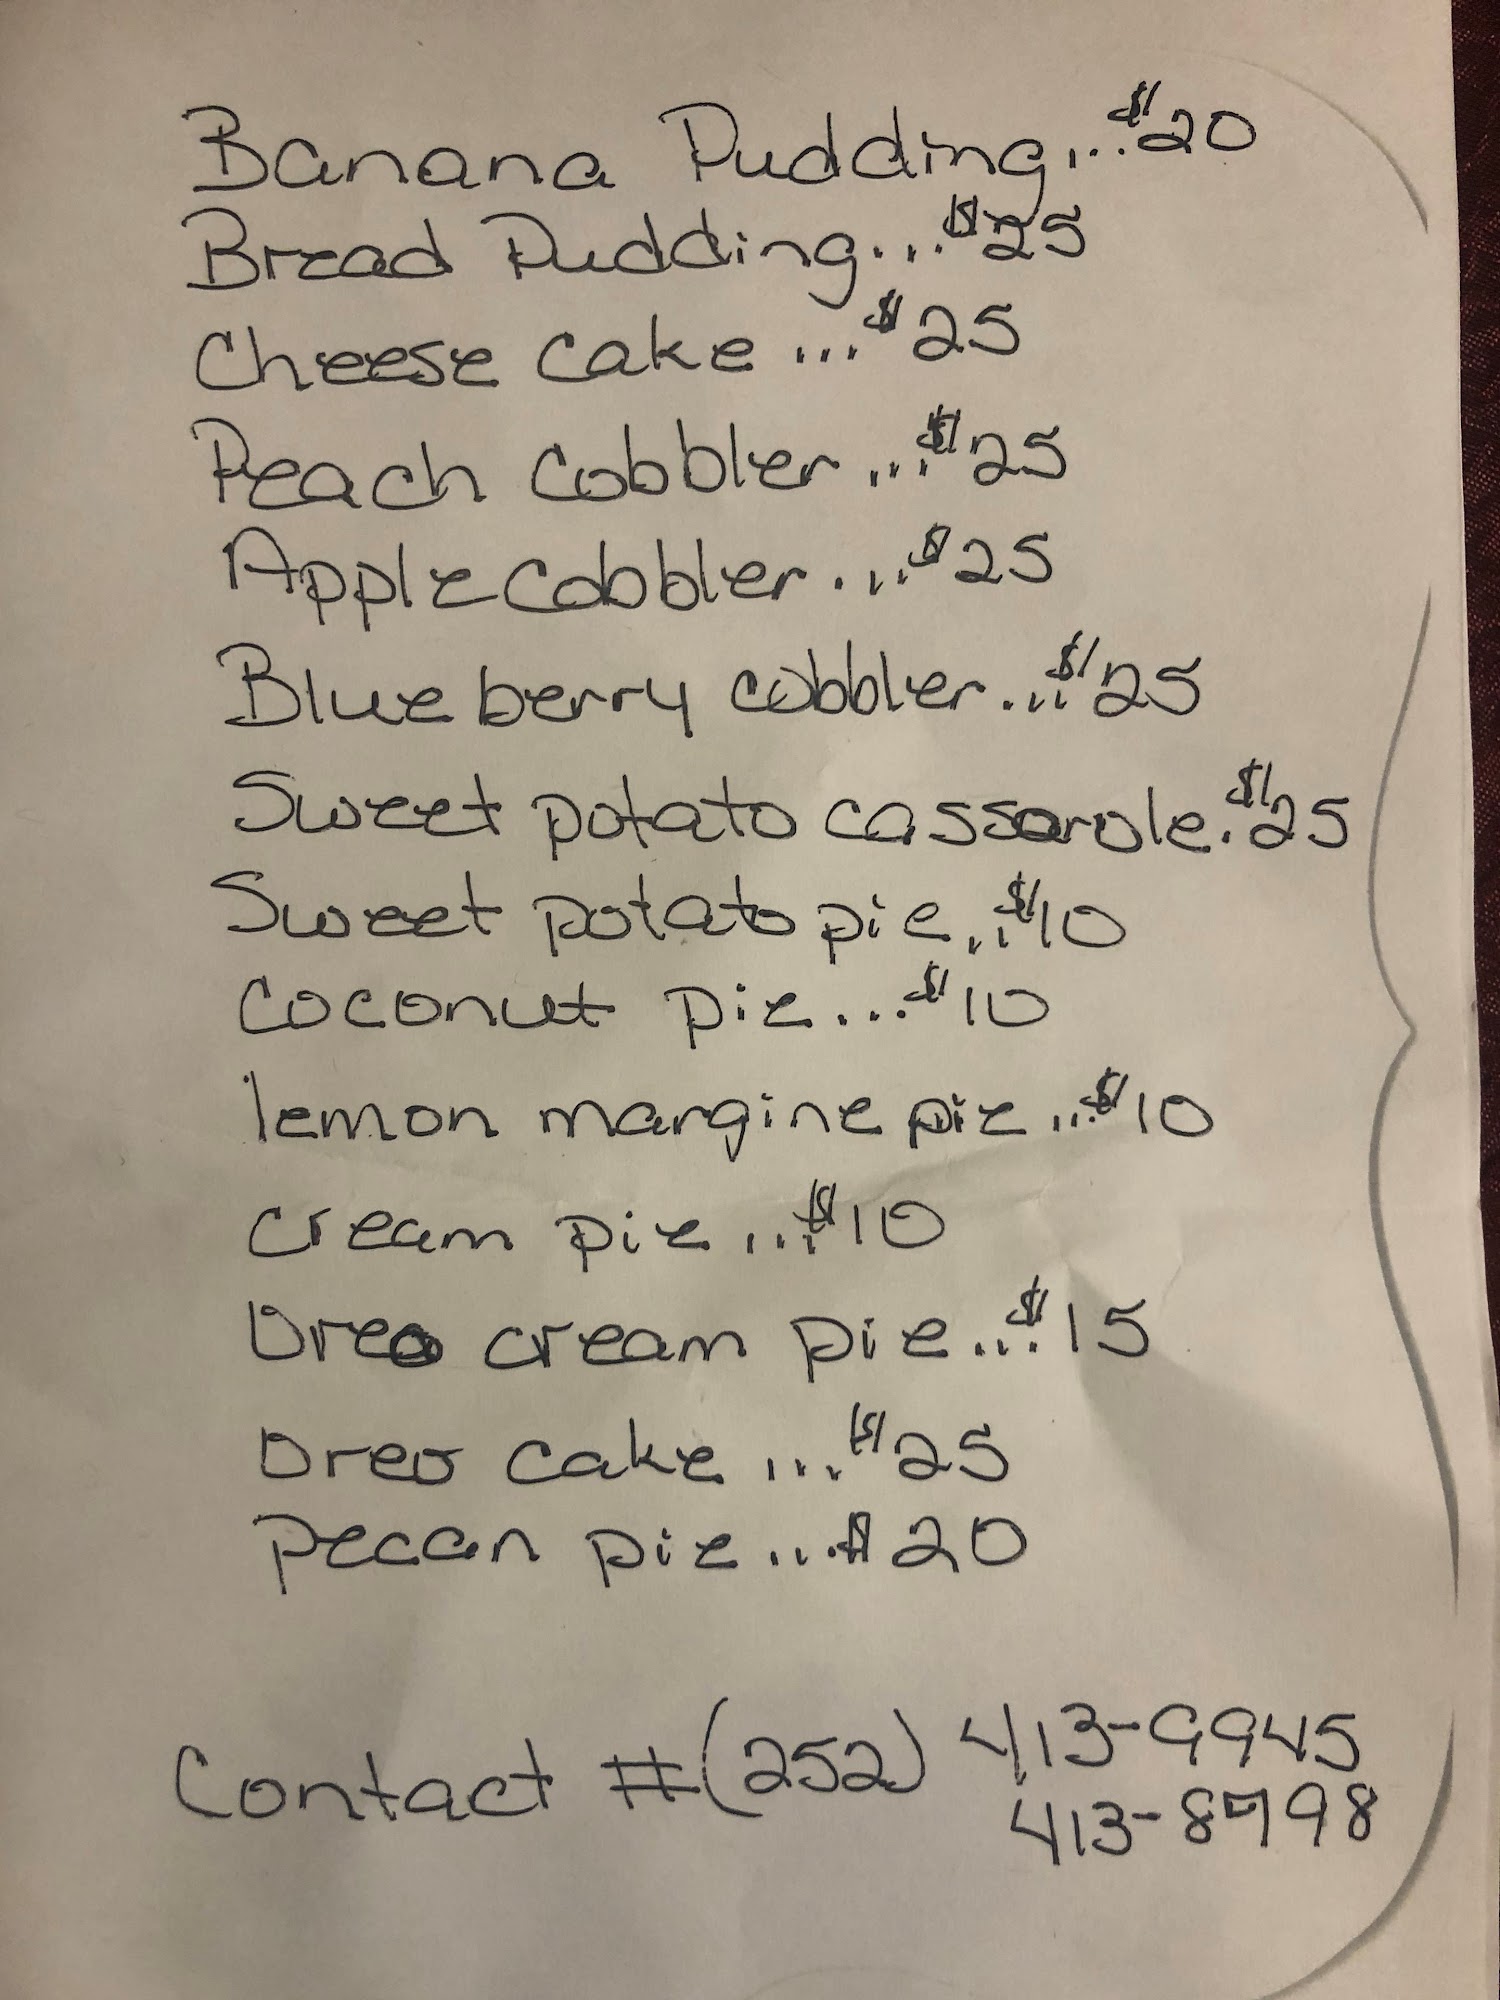 Banana Pudding...$20
Bread Pudding...$25
Cheese cake...$25
Peach cobbler...$25
Apple cobbler...$25
Blue berry cobbler...$25
Sweet potato cassarole.$25
Sweet potato pie...$10
Coconut pie...$10
lemon margine pie...$10
cream pie...$10
Oreo cream pie...$15
Oreo cake...$25
pecan pie...$20
Contact #(252) 413-9945
413-8798